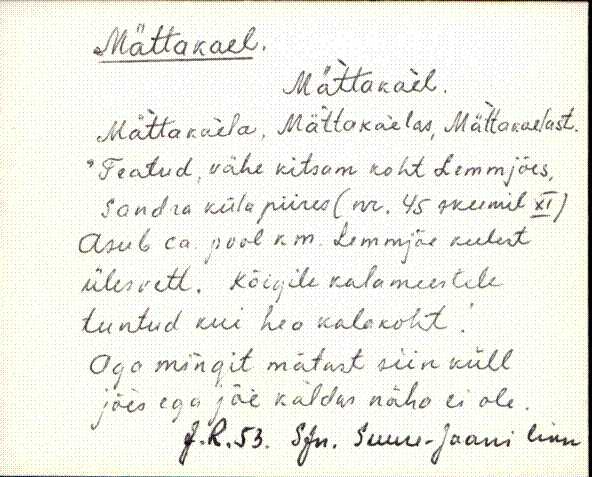 Mättakael.
Mättakael.
Mättakaela, Mättakaelas, Mättakaelast.
Teatud, vähe kitsam koht Lemmjões,
Sandra küla piires (nr. 45 skeemil XI)
Asub ca. pool km. Lemmjõe suudest
ülesvett. Kõigile kalameestele
tuntud kui hea kalakoht!
Aga mingit mätast siin küll
jões ega jõe kaldas näha ei ole.
J.R.53. SJn. Suure-Jaani linn